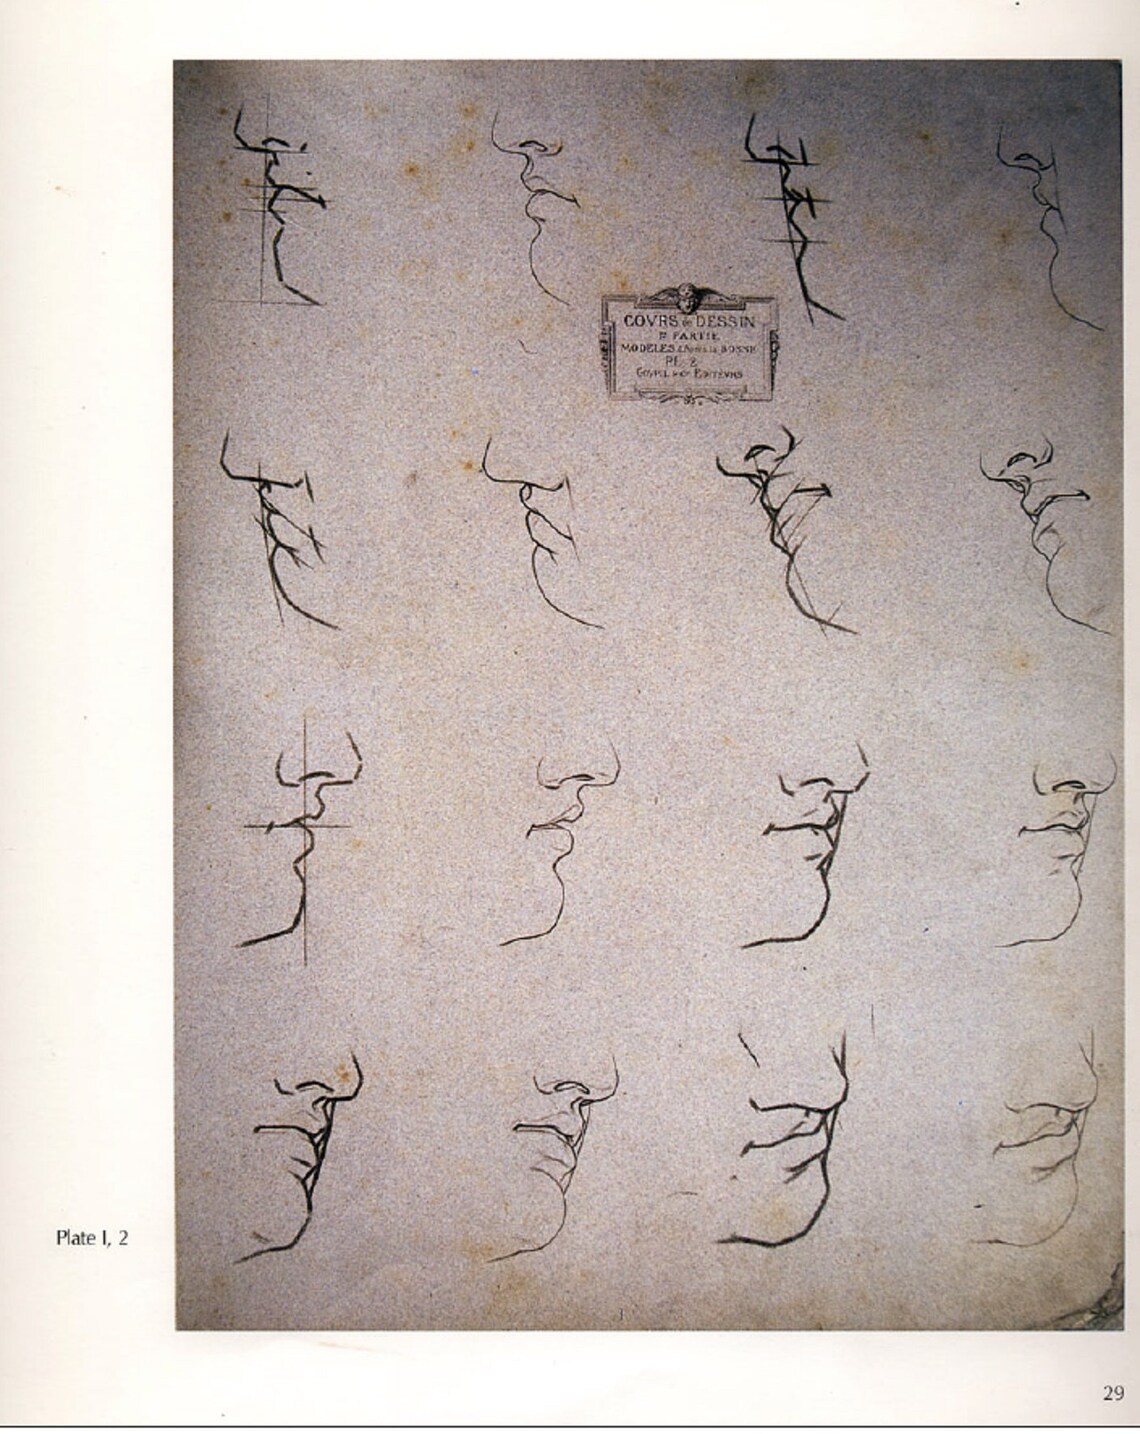 COVRS de DESSIN
Iᵉ PARTIE
MODELES d'Après la BOSSE
Pl. 2
GOVPIL & Cie EDITEVRS
Plate I, 2
29